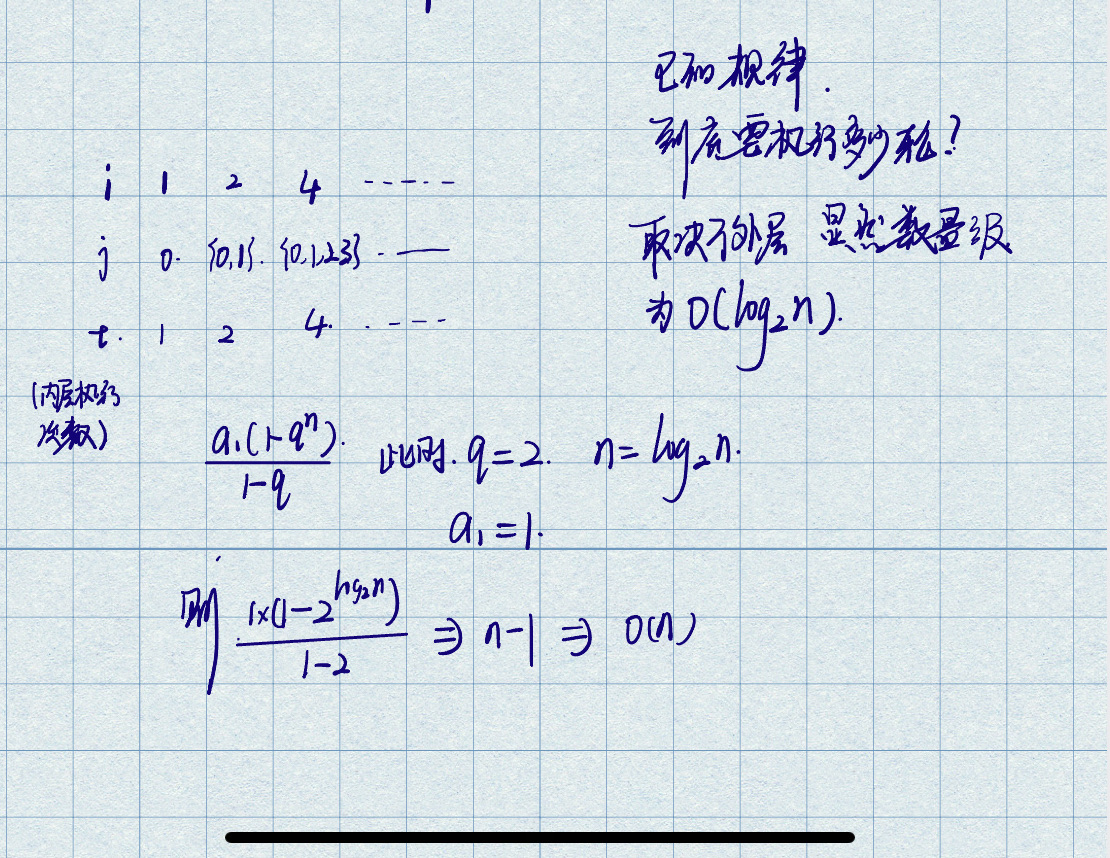 它的规律.
到底要执行多少轮?
取决于外层 显然数量级
为 O(log₂n).
i 1 2 4 ------
j 0. {0,1}. {0,1,2,3} - ——
t. 1 2 4. . - - - -
(内层执行
次数)
a₁(1-qⁿ). / 1-q 此时. q=2. n=log₂n.
a₁=1.
则 1×(1-2^log₂n) / 1-2 ⇒ n-1 ⇒ O(n)